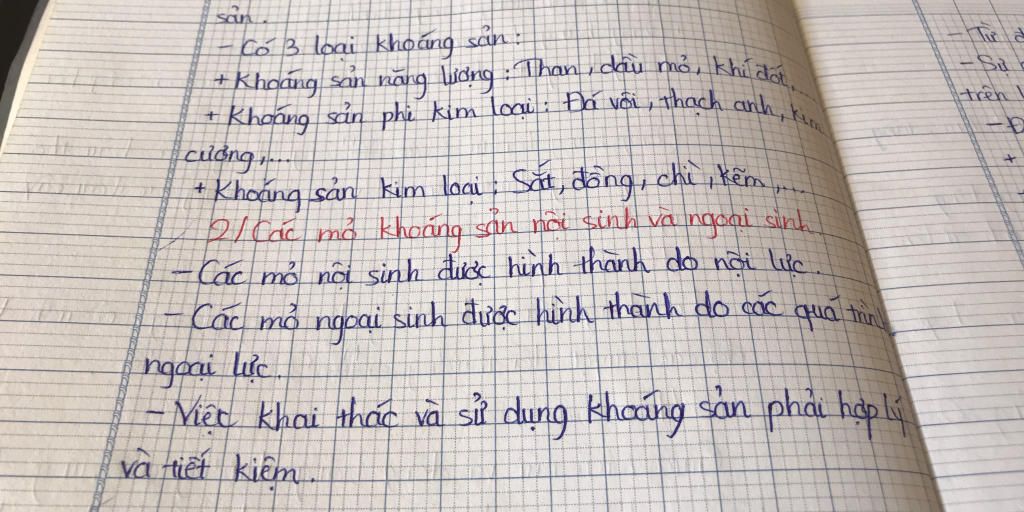 sản.
- Có 3 loại khoáng sản:
+ Khoáng sản năng lượng: Than, dầu mỏ, khí đốt,...
+ Khoáng sản phi kim loại: Đá vôi, thạch anh, kim
cương,...
+ Khoáng sản kim loại: Sắt, đồng, chì, kẽm,...
2/ Các mỏ khoáng sản nội sinh và ngoại sinh
- Các mỏ nội sinh được hình thành do nội lực.
- Các mỏ ngoại sinh được hình thành do các quá trình
ngoại lực.
- Việc khai thác và sử dụng khoáng sản phải hợp lý
và tiết kiệm.
- Từ
- Sử
trên
- Đ
+